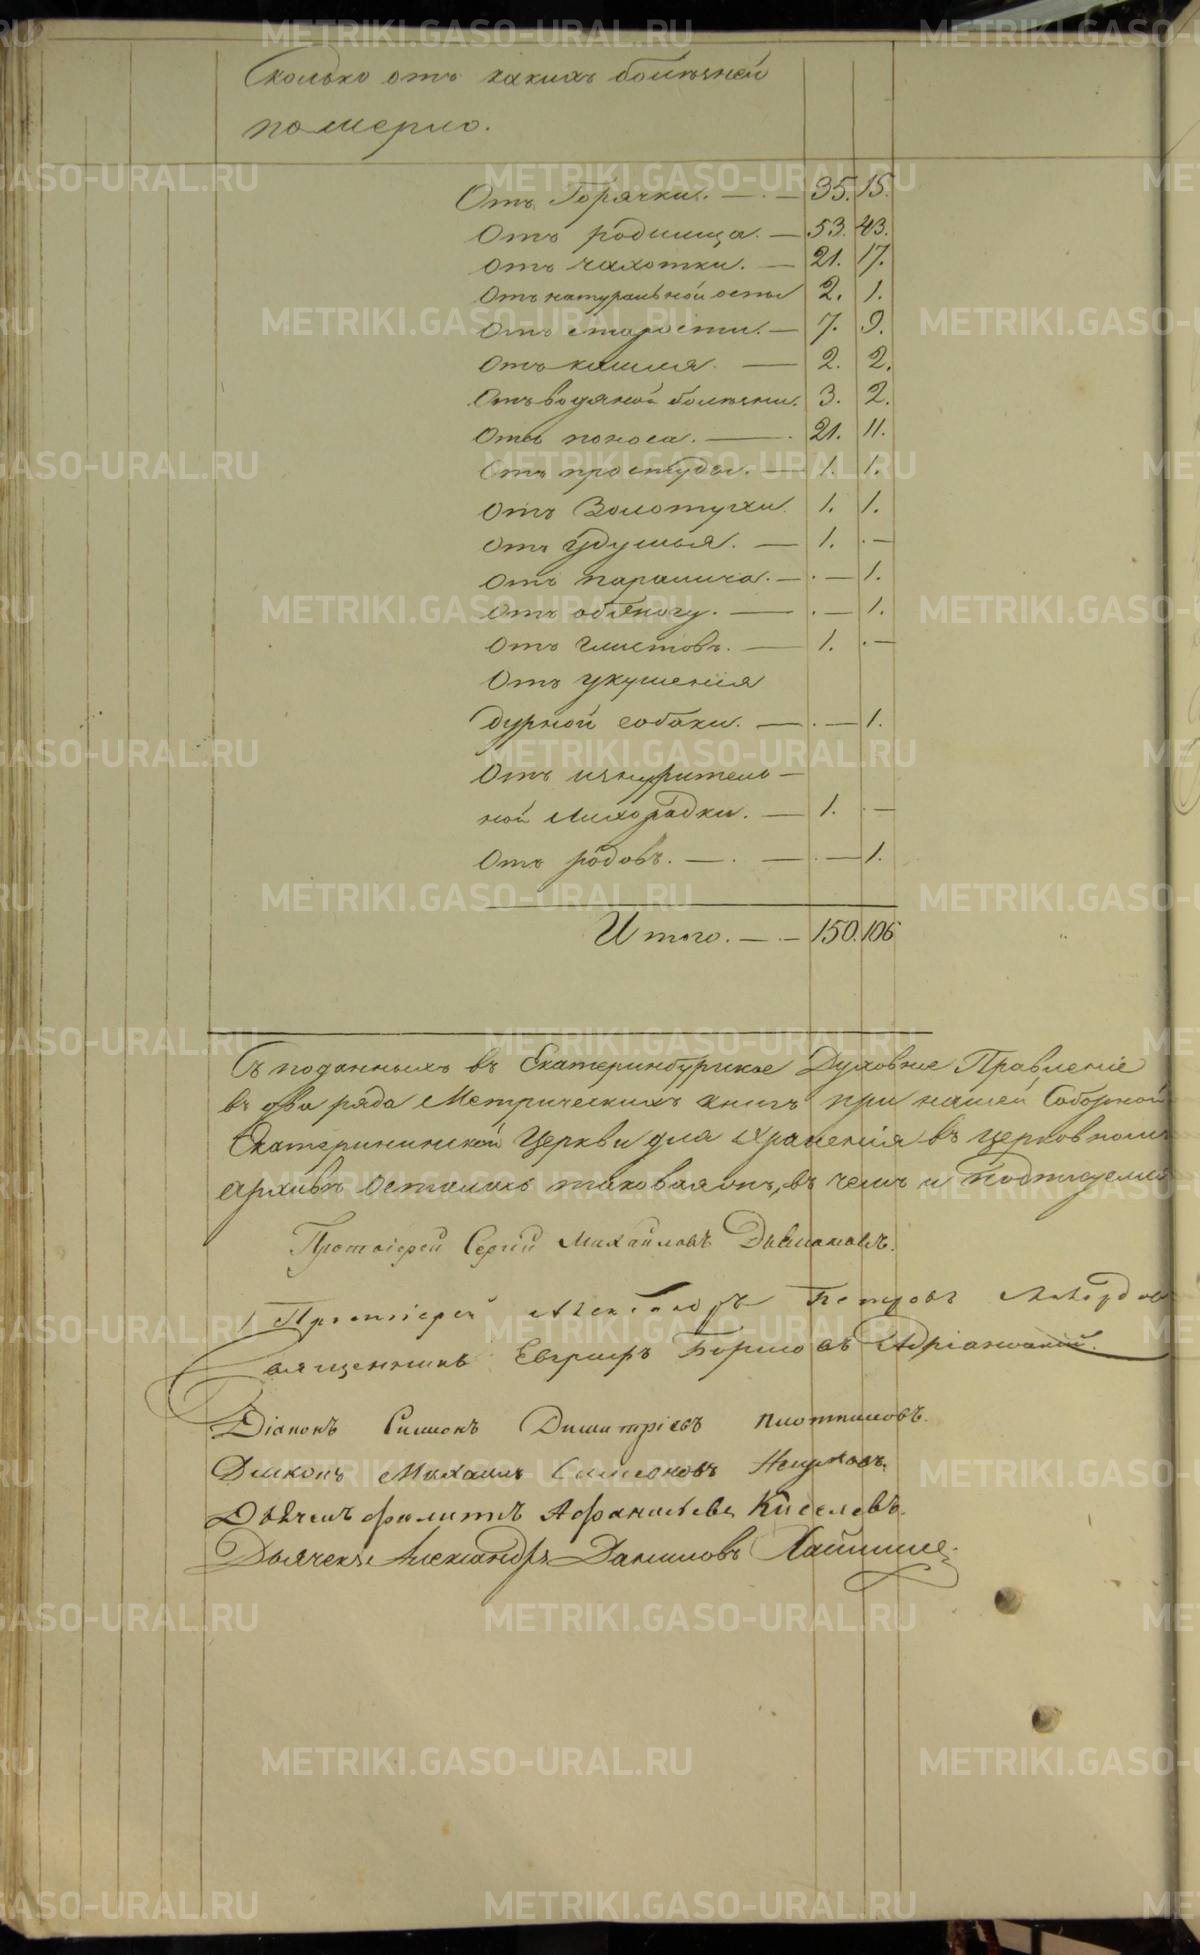 Сколько отъ какихъ болѣзней
померло.
Отъ Горячки. — . — 35. 15.
Отъ родимца. — 53. 43.
Отъ чахотки. — 21. 17.
Отъ натуральной оспы 2. 1.
Отъ старости. — 7. 9.
Отъ кашля. — 2. 2.
Отъ водяной болѣзни. 3. 2.
Отъ поноса. — . 21. 11.
Отъ простуды. — 1. 1.
Отъ Золотухи. 1. 1.
Отъ Удушья. — 1. . —
Отъ паралича. — . — 1.
Отъ — . — 1.
Отъ глистовъ. — 1. . —
Отъ укушенія
дурной собаки. — . — 1.
Отъ изнуритель—
ной Лихорадки. — 1. . —
Отъ родовъ. — . — . — 1.
Итого. — . — 150. 106
Съ поданныхъ въ Екатеринбургское Духовное Правленіе
въ два ряда Метрическихъ книгъ при нашей Соборной
Екатерининской Церкви для храненія въ церковномъ
архивѣ осталась таковая въ чемъ и подписуемся
Протоіерей Сергій Михайловъ
Протоіерей Александръ Петровъ
Священникъ Евграфъ Борисовъ Адріановскій.
Діаконъ Симеонъ Димитріевъ Плотниковъ.
Діаконъ Михаилъ Симеоновъ
Дьячекъ Филиппъ Афанасьевъ Киселевъ.
Дьячекъ Александръ Даниловъ
METRIKI.GASO-URAL.RU